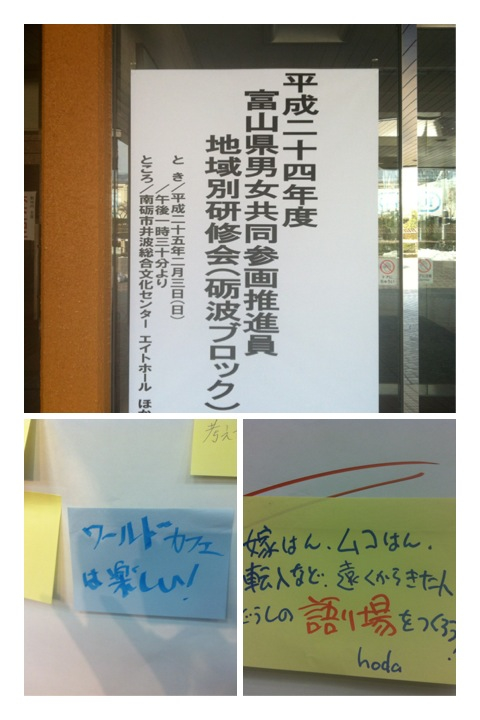 平成二十四年度
富山県男女共同参画推進員
地域別研修会(砺波ブロック)
と き/平成二十五年二月三日(日)
/午後一時三十分より
ところ/南砺市井波総合文化センター エイトホール ほか
考え
ワールドカフェ
は楽しい!
嫁はん、ムコはん、
転入など、遠くからきた人
どうしの 語り場 をつくろう!
hoda